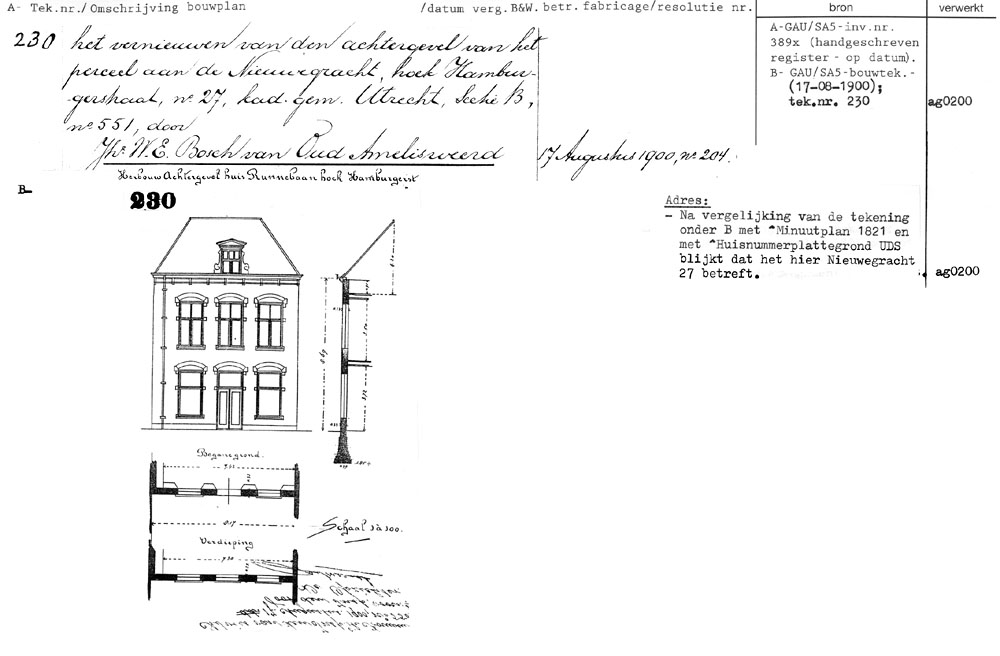 A- Tek.nr./Omschrijving bouwplan /datum verg.B&W.betr.fabricage/resolutie nr. bron verwerkt
230 het vernieuwen van den achtergevel van het
perceel aan de Nieuwegracht, hoek Hambur-
gerstraat, no 27, kad. gem. Utrecht, Sectie B,
no 551, door
Jhr. W.E. Bosch van Oud Amelisweerd 17 Augustus 1900, no 204.
A-GAU/SA5-inv.nr.
389x (handgeschreven
register - op datum).
B- GAU/SA5-bouwtek.-
(17-08-1900);
tek.nr. 230 ag0200
Herbouw Achtergevel huis Runnebaan hoek Hamburgerst
B-
230
Adres:
- Na vergelijking van de tekening
onder B met ^Minuutplan 1821 en
met ^Huisnummerplattegrond UDS
blijkt dat het hier Nieuwegracht
27 betreft. ag0200
Beganegrond.
Schaal 1 à 100.
Verdieping